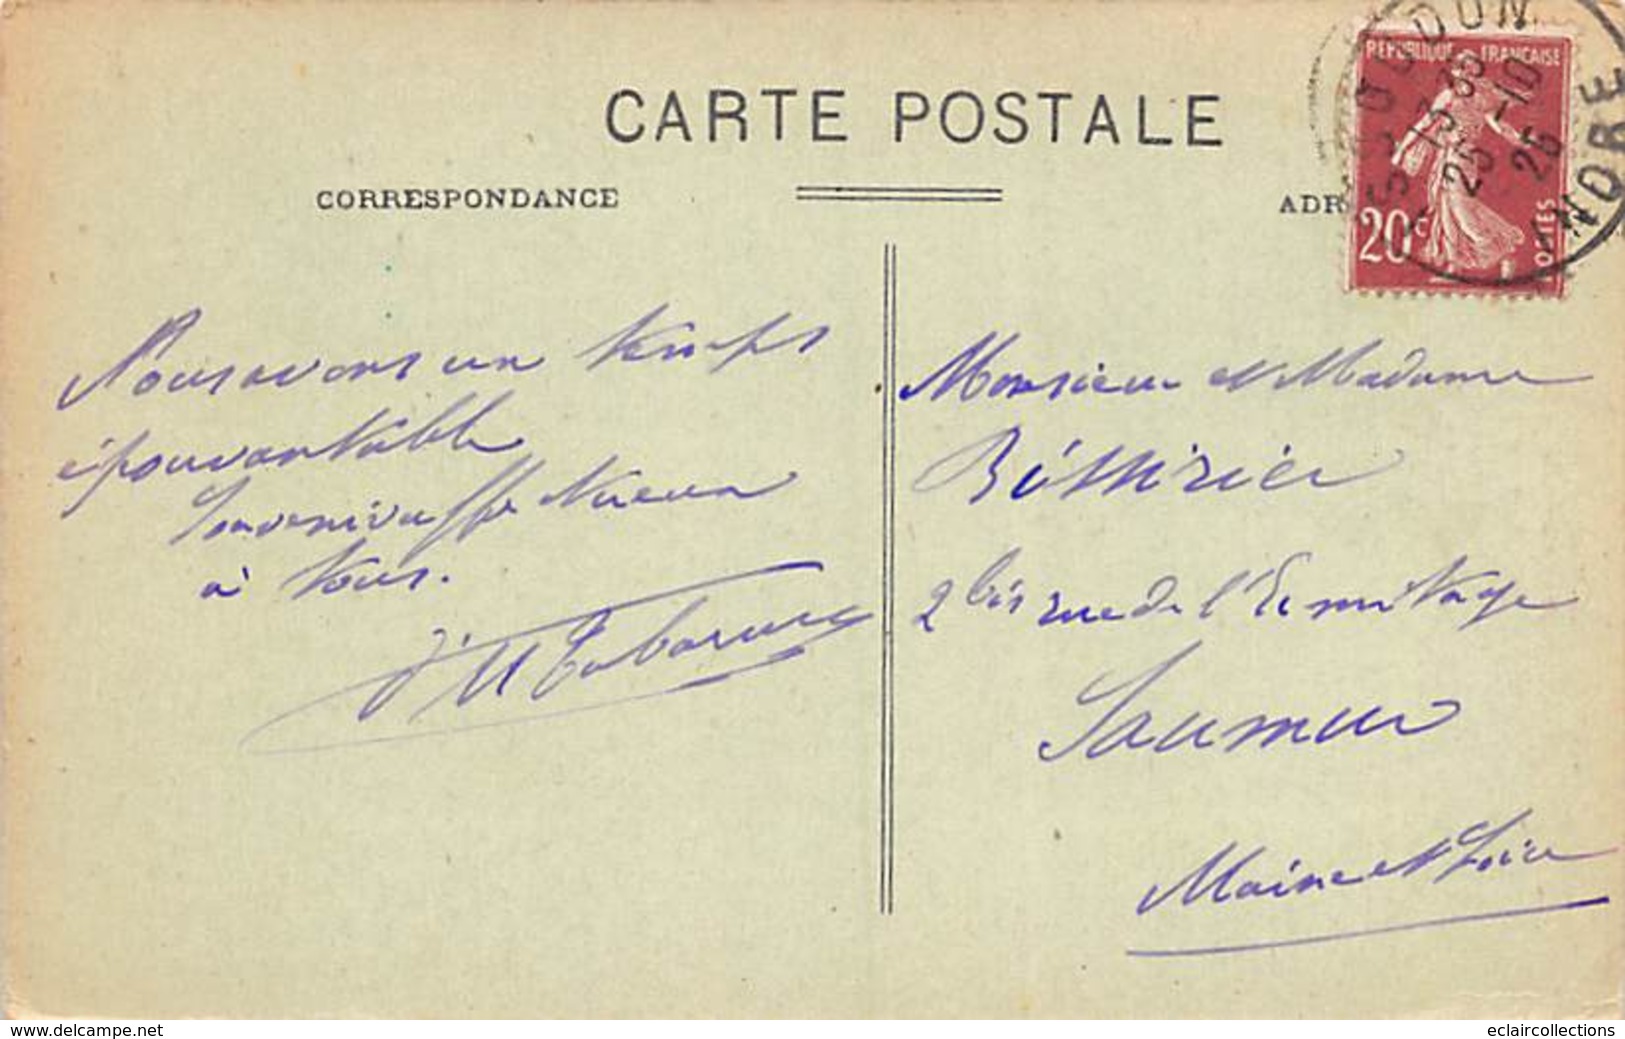 CARTE POSTALE
CORRESPONDANCE
ADR
RÉPUBLIQUE FRANÇAISE
20c
POSTES
ISSOUDUN
13 35
25 -10
26
INDRE
Nous avons un temps
épouvantable
Souvenir affectueux
à tous.
Monsieur et Madame
2 bis rue de l'Ermitage
Saumur
Maine et Loire
www.delcampe.net
eclaircollections